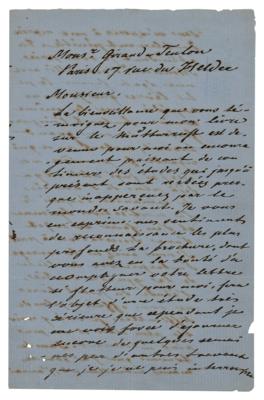 Monsr. Giraud-Teulon
Paris 17 rue du Helder
Monsieur.
La bienveillance que vous té-
moignez pour mon livre
sur le Mutterrecht est de-
venue pour moi un encoura-
gement puissant de con-
tinuer des études qui jusqu'à
présent sont restées pres-
que inapperçues par le
monde savant. Je vous
en exprime mes sentiments
de reconnaissance le plus
profonds. La brochure, dont
vous avez eu la bonté d'a-
compagner votre lettre
si flatteuse pour moi, fera
l'objet d'une étude très
sérieuse que cependant je
me vois forcé d'ajourner
encore de quelques semai-
nes par d'autres travaux
que je ne puis interrompre